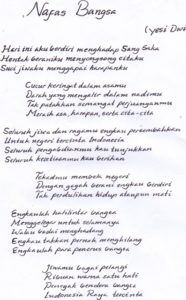 Nafas Bangsa
(yesi Dwi
Hari ini aku berdiri menghadap Sang Saka
Hentak beraniku menyongsong citaku
Suci jiwaku menggapai harapanku
Cucur keringat dalam asamu
Darah yang mengalir dalam nadimu
Tak patahkan semangat perjuanganmu
Meraih asa, harapan, serta cita-cita
Seluruh jiwa dan ragamu engkau persembahkan
Untuk negeri tercinta Indonesia
Seluruh pengabdianmu kau tunjukkan
Seluruh kesetiaanmu kau berikan
Tekadmu membela negeri
Dengan gagah berani engkau berdiri
Tak perdulikan hidup ataupun mati
Engkaulah halilintar bangsa
Menggelegar untuk selamanya
Walau badai menghadang
Engkau takkan pernah menghilang
Engkaulah para penerus bangsa
Jiwamu bagai pelangi
Ribuan warna satu hati
Decakkan benderu bangsa
Indonesia Raya tercinta